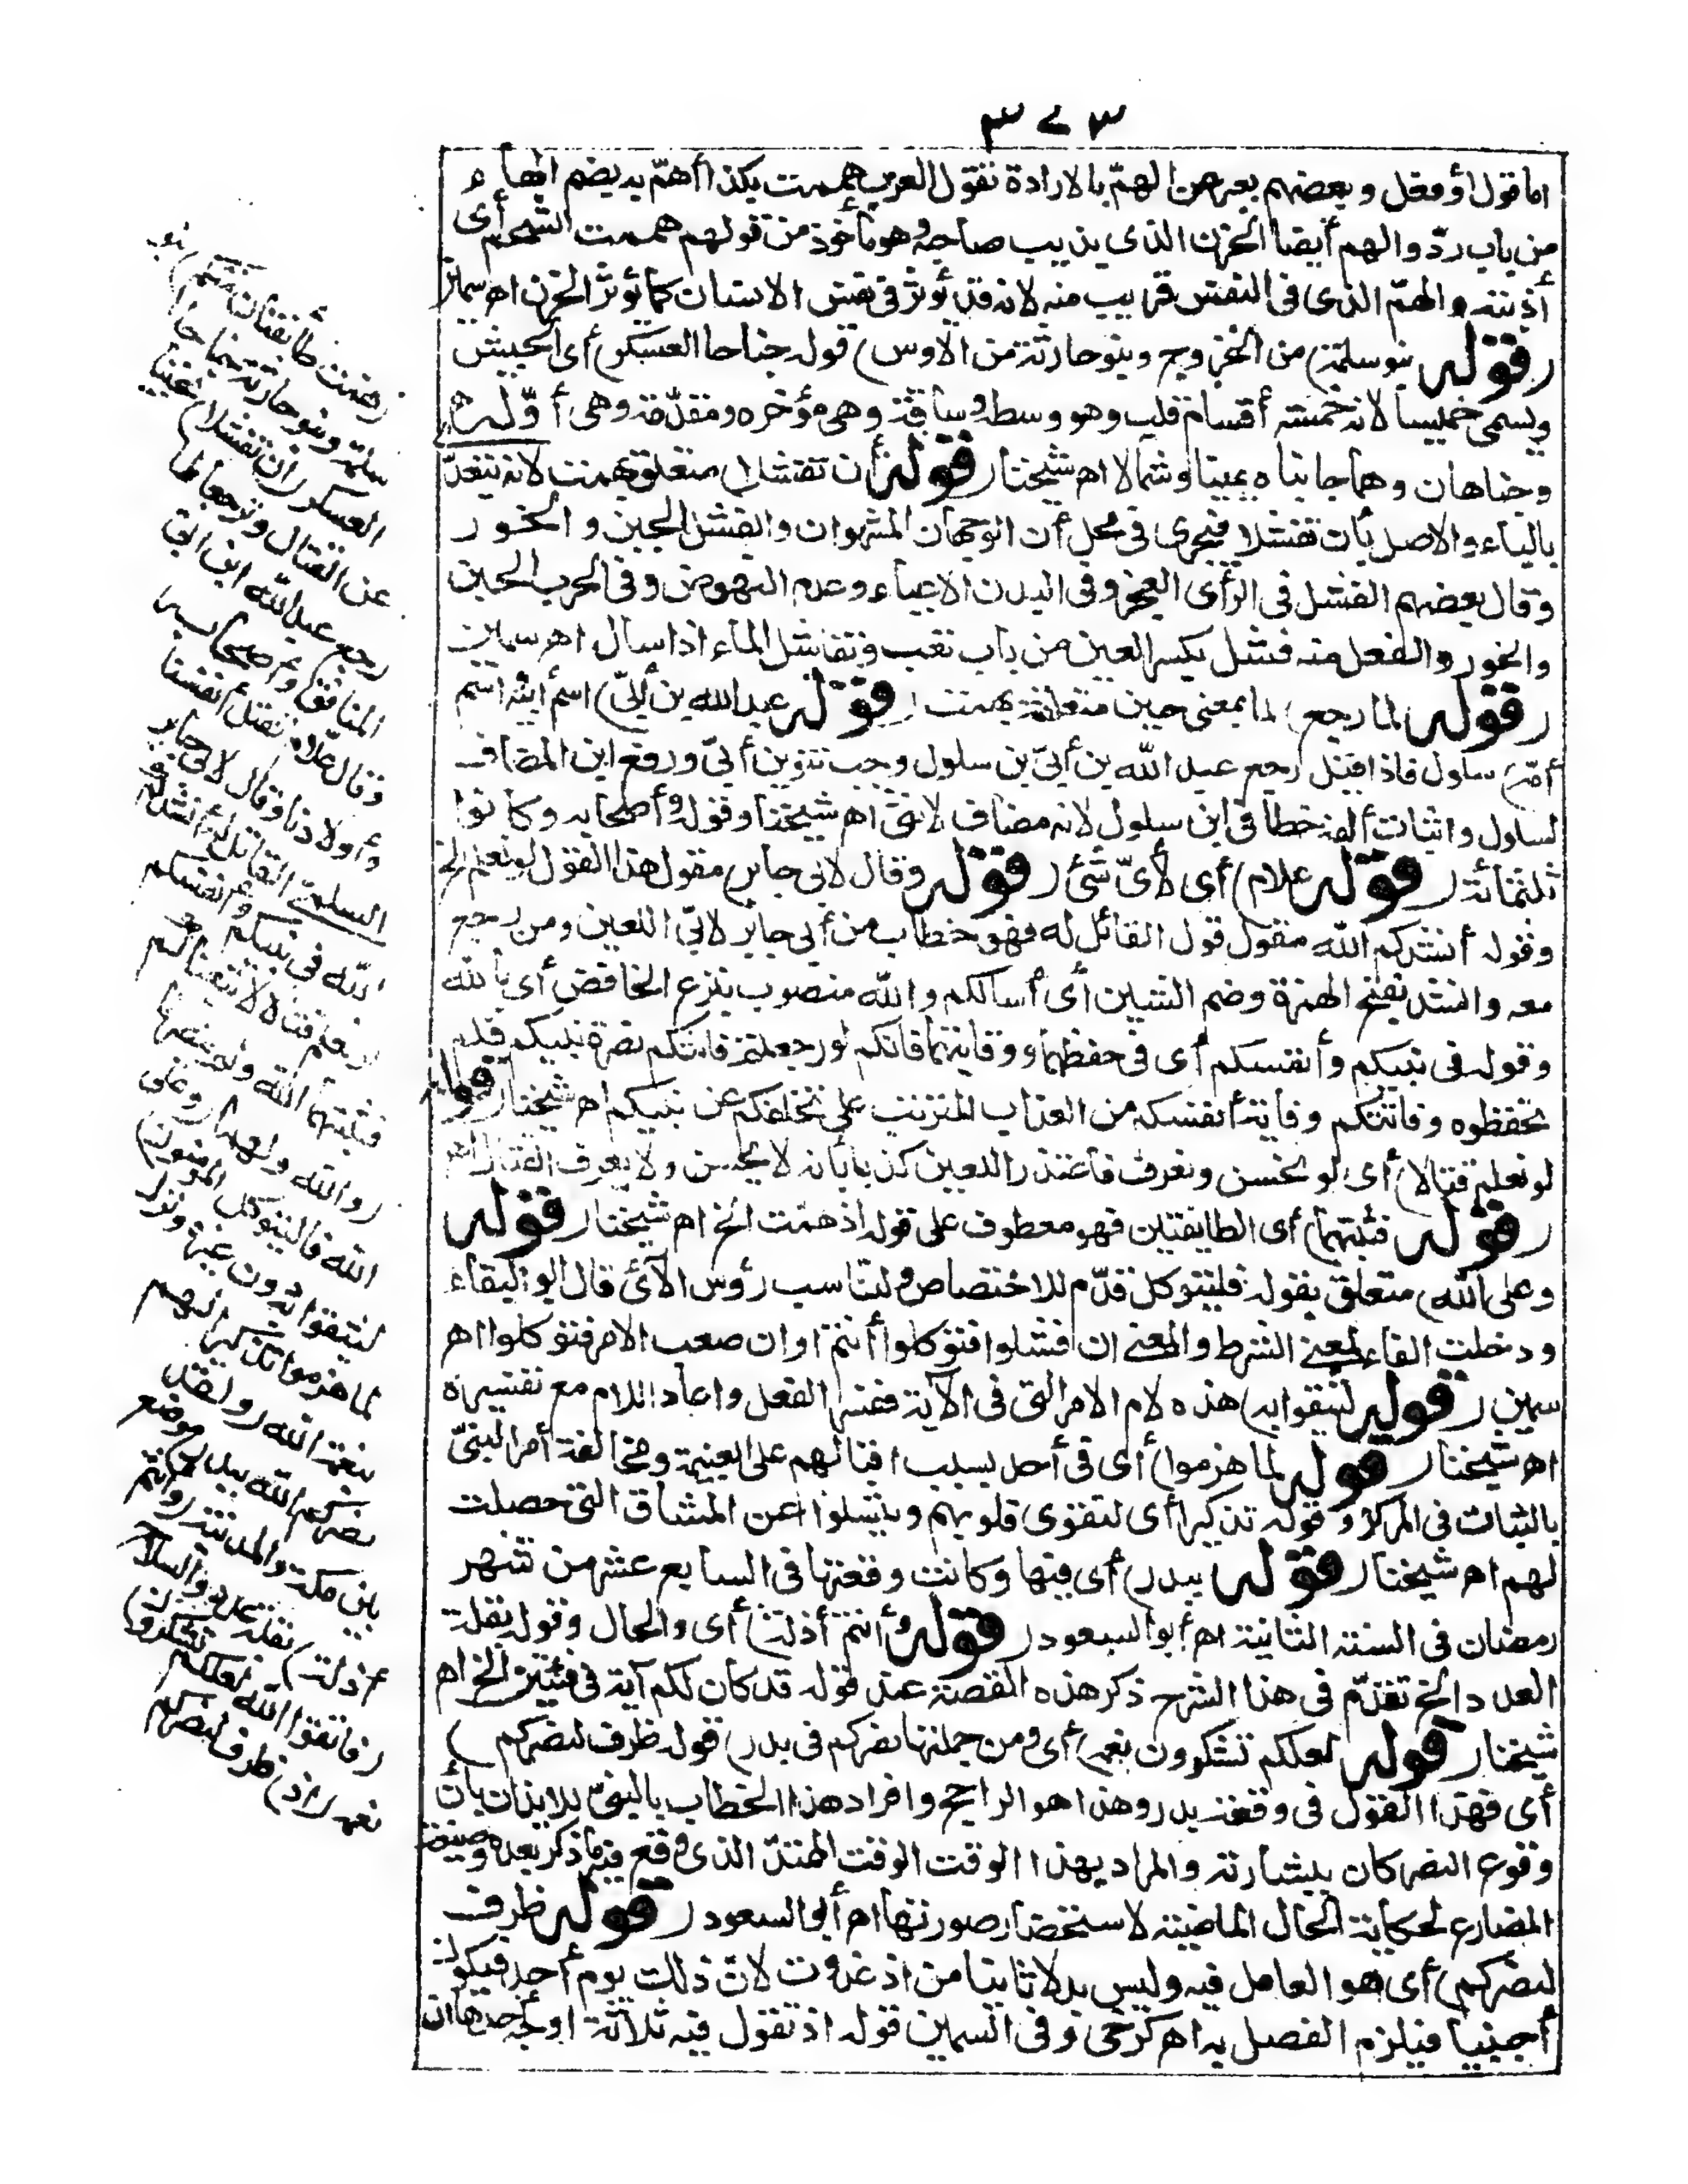 ٣٧٣
اما قولا أو فعل وبعضهم يعبر عن الهمّ بالارادة تقول العرب هممت بكذا أهمّ به بضم الهاء
من باب ردّ والهم أيضا الحزن الذى يذيب صاحبه وهو مأخوذ من قولهم هممت الشحم أى
أذبته والهمّ الذى فى النفس قريب منه لانه قد يؤثر فى نفس الانسان كما يؤثر الحزن اه سمين
(قوله بنو سلمة) من الخزرج وبنو حارثة من الأوس) قوله جناحا العسكر) أى الجيش
ويسمى خميسا لانه خمسة أقسام قلب وهو وسطه وساقة وهى مؤخره ومقدّمة وهى أوّله
وجناهان وهما جانباه يمينا وشمالا اه شيخنا (قوله أن تفشلا) متعلق بهمت لانه يتعدّى
بالباء والاصل بأن تفشلا فيجرى فى محل أن الوجهان المشهوران والفشل الجبن والخور
وقال بعضهم الفشل فى الرأى العجز وفى البدن الاعياء وعدم النهوض وفى الحرب الجبن
والخور والفعل منه فشل بكسر العين من باب تعب وتفاشل الماء اذا سال اه سمين
(قوله لما رجع) لما بمعنى حين متعلقة بهمت (قوله عبد الله بن أبىّ) اسم أبيه اسم
أمّه) سلول فاذا قيل رجع عبد الله بن أبىّ بن سلول وجب تنوين أبىّ ورفع ابن المضاف
لسلول واثبات ألفه خطا فى ابن سلول لانه مضاف لانثى اه شيخنا وقوله وأصحابه وكانوا
ثلثمائة (قوله علام) أى لأىّ شئ (قوله وقال لابى جابر) مقول هذا القول لو نعلم الخ
وقوله أنشدكم الله مقول قول القائل له فهو خطاب من أبى جابر لابىّ اللعين ومن رجع
معه والنشد بفتح الهمزة وضم الشين أى أسألكم والله منصوب بنزع الخافض أى بالله
وقوله فى نبيكم وأنفسكم أى فى حفظهما ووقايتهما فانكم لو رجعتم فاتتكم نصرة نبيكم فلم
تحفظوه وفاتتكم وقاية أنفسكم من العذاب المترتب على تخلفكم عن نبيكم اه شيخنا (قوله
لو نعلم قتالا) أى لو نحسن ونعرف فاعتذر اللعين كذبا بأنه لا يحسن ولا يعرف القتال اه
(قوله فثبتهما) أى الطايفتين فهو معطوف على قوله اذ همت الخ اه شيخنا (قوله
وعلى الله) متعلق بقوله فليتوكل قدّم للاختصاص ولتناسب رؤس الآى قال أبو البقاء
ودخلت الفاء لمعنى الشرط والمعنى ان فشلوا فتوكلوا أنتم اوان صعب الامر فتوكلوا اه
سمين (قوله لتثقوا به) هذه لام الامر التى فى الآية ففسر الفعل واعاد اللام مع تفسيره
اه شيخنا (قوله لما هزموا) أى فى أحد بسبب اقبالهم على الغنيمة ومخالفة أمر النبىّ
بالثبات فى المركز وقوله تذكيرا أى لتقوى قلوبهم ويتسلوا عن المشاق التى حصلت
لهم اه شيخنا (قوله ببدر) أى فيها وكانت وقعتها فى السابع عشر من شهر
رمضان فى السنة الثانية اه أبو السعود (قوله وأنتم أذلة) أى والحال وقوله بقلة
العدد الخ تقدّم فى هذا الشرح ذكر هذه القصة عند قوله قد كان لكم آية فى فئتين الخ اه
شيخنا (قوله لعلكم تشكرون نعمه) أى ومن جملتها نصركم فى بدر) قوله ظرف لنصركم)
أى فهذا القول فى وقعة بدر وهذا هو الراجح وافراد هذا الخطاب بالنبىّ للايذان بأن
وقوع النصر كان ببشارته والمراد بهذا الوقت الوقت الممتدّ الذى وقع فيه ما ذكر بعده وصيغة
المضارع لحكاية الحال الماضية لاستحضار صورتها اه أبو السعود (قوله ظرف
لنصركم) أى هو العامل فيه وليس بدلا ثانيا من اذ غدوت لان ذلك يوم أحد فيكون
أجنبيا فيلزم الفصل به اه كرخى وفى السمين قوله اذ تقول فيه ثلاثة أوجه أحدها ان
(همت طائفتان منكم) بنو
سلمة وبنو حارثة جناحا
العسكر (أن تفشلا) تجبنا
عن القتال وترجعا لما
رجع عبد الله ابن ابى
المنافق وأصحابه
وقال علام نقتل أنفسنا
وأولادنا وقال لابى جابر
السلمىّ القائل له أنشدكم
الله فى نبيكم وأنفسكم
لو نعلم قتالا لاتبعناكم
فثبتهما الله ولم ينصرفا
(والله وليهما) (وعلى
الله فاليتوكل المؤمنون)
ليثقوا به دون غيره ونزل
لما هزموا تذكيرا لهم
بنعمة الله (ولقد
نصركم الله ببدر) موضع
بين مكة والمدينة (وأنتم
أذلة) بقلة العدد والسلاح
(فاتقوا الله لعلكم تشكرون)
نعمه (اذ) ظرف لنصركم